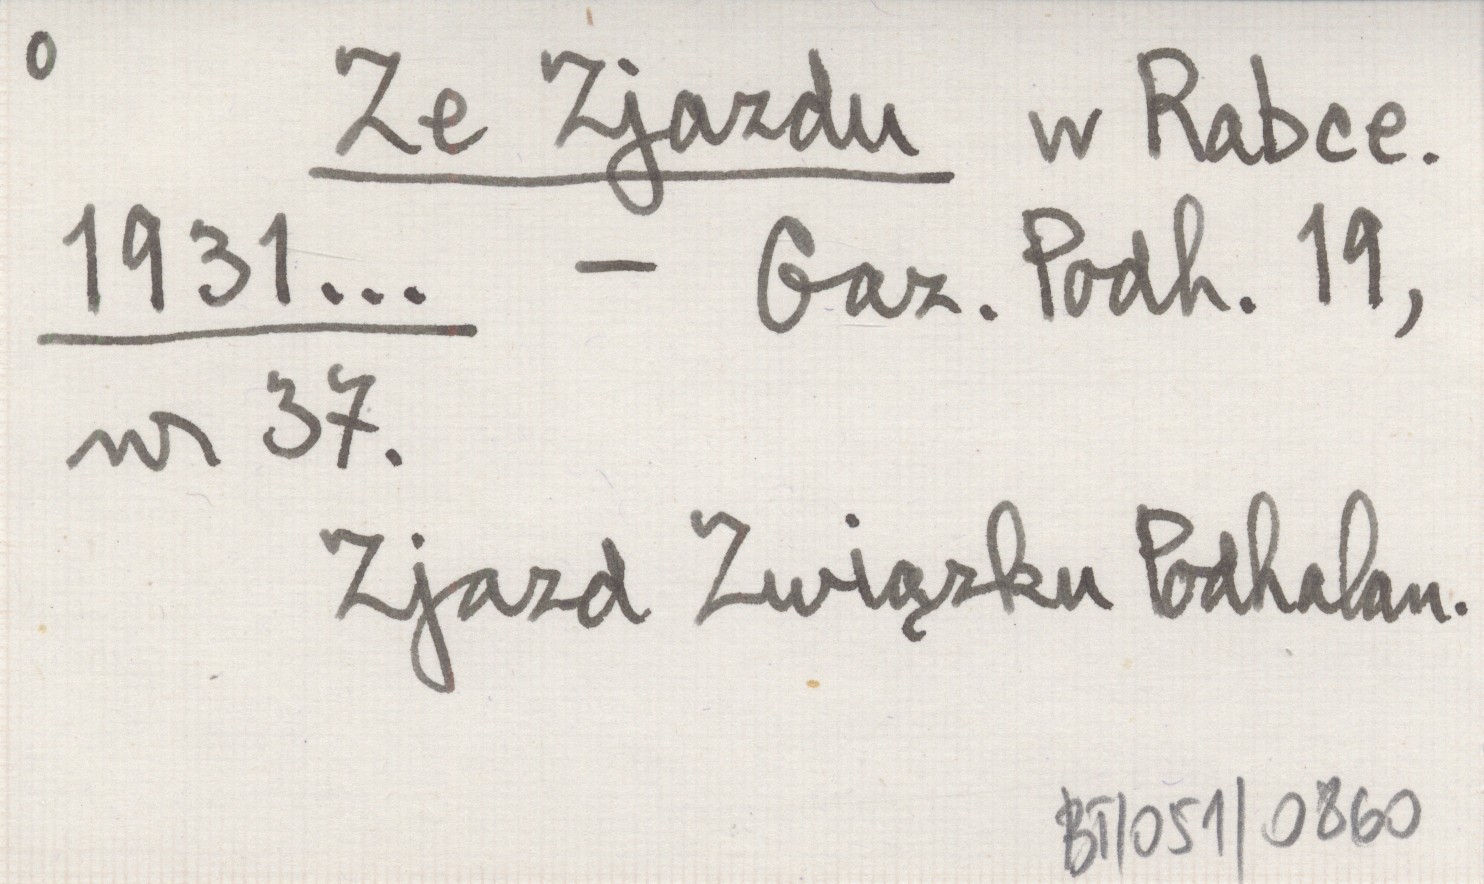 0 Ze Zjazdu w Rabce.
1931... – Gaz. Podh. 19,
nr 37.
Zjazd Związku Podhalan.
BT/051/0860